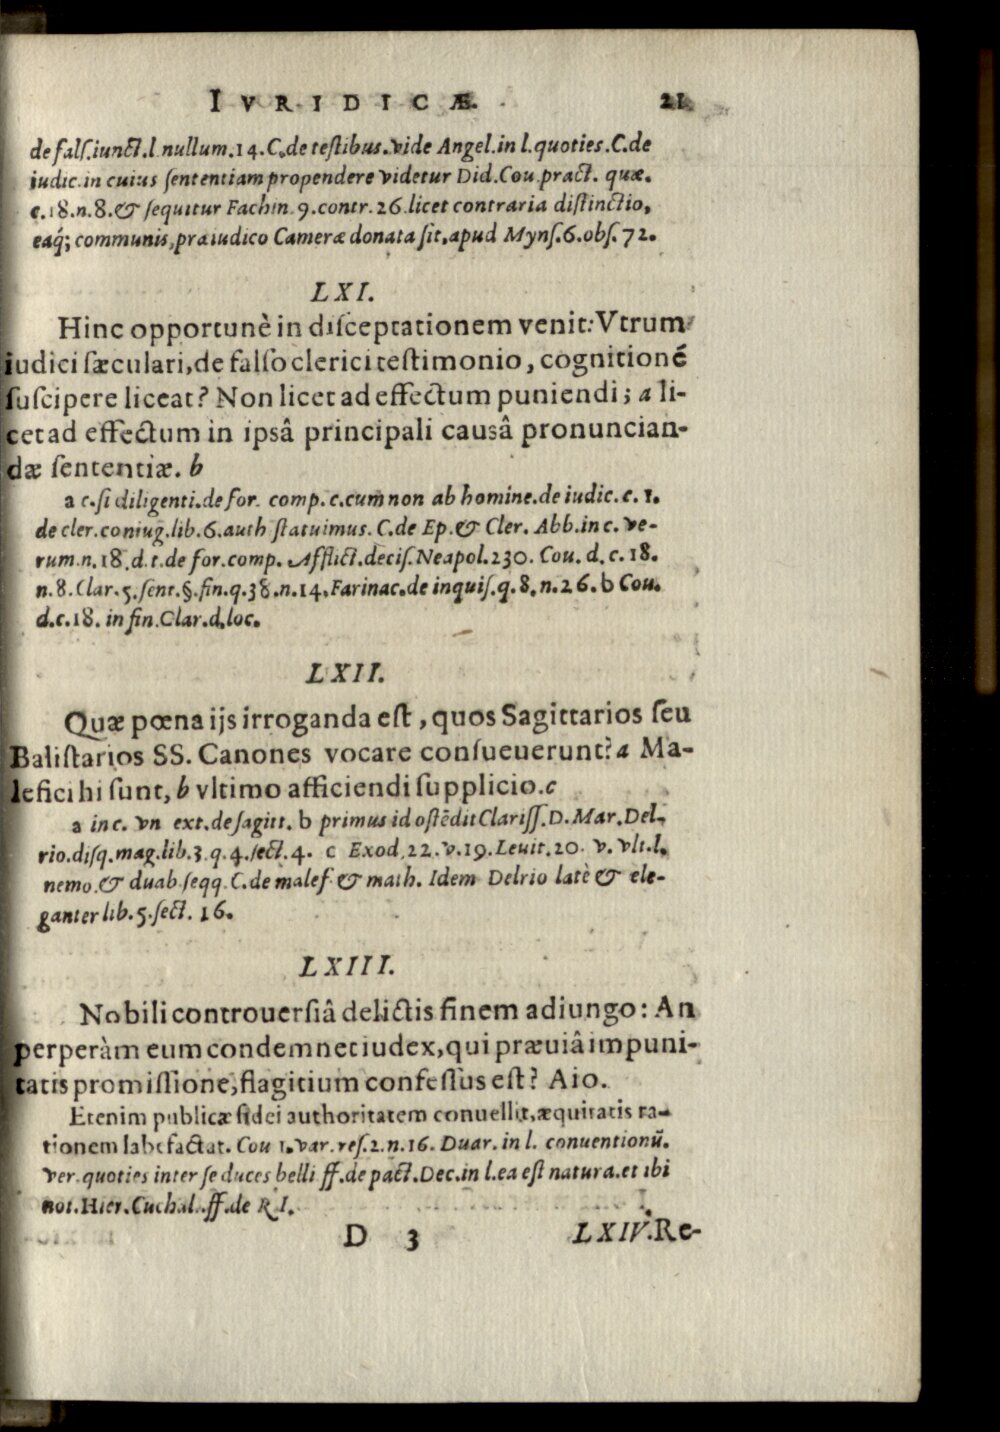 IVRIDICÆ. 21.
de falſ. iunct. l. nullum. 14. C. de teſtibus. vide Angel. in l. quoties. C. de
iudic. in cuius ſententiam propendere videtur Did. Cou. pract. quæ.
c. 18. n. 8. & ſequitur Fachin. 9. contr. 26. licet contraria diſtinctio,
eaq́; communis, præiudico Cameræ donata ſit, apud Mynſ. 6. obſ. 72.
LXI.
Hinc opportunè in diſceptationem venit: Vtrum
iudici ſæculari, de falſo clerici teſtimonio, cognitionē
ſuſcipere liceat? Non licet ad effectum puniendi; a li-
cet ad effectum in ipsâ principali causâ pronuncian-
dæ ſententiæ. b
a c. ſi diligenti. de for. comp. c. cum non ab homine. de iudic. c. 1.
de cler. coniug. lib. 6. auth ſtatuimus. C. de Ep. & Cler. Abb. in c. ve-
rum. n. 18. d. t. de for. comp. Afflict. deciſ. Neapol. 230. Cou. d. c. 18.
n. 8. Clar. 5. ſent. §. fin. q. 38. n. 14. Farinac. de inquiſ. q. 8. n. 26. b Cou.
d. c. 18. in fin. Clar. d. loc.
LXII.
Quæ pœna ijs irroganda eſt, quos Sagittarios ſeu
Baliſtarios SS. Canones vocare conſueuerunt? a Ma-
lefici hi ſunt, b vltimo afficiendi ſupplicio. c
a in c. vn ext. de ſagitt. b primus id oſtēdit Clariſſ. D. Mar. Del-
rio. diſq. mag. lib. 3. q. 4. ſect. 4. c Exod. 22. v. 19. Leuit. 20. v. vlt. l.
nemo. & duab. ſeqq. C. de malef. & math. Idem Delrio latè & ele-
ganter lib. 5. ſect. 16.
LXIII.
Nobili controuerſiâ delictis finem adiungo: An
perperàm eum condemnet iudex, qui præuiâ impuni-
tatis promiſſione, flagitium confeſſus eſt? Aio.
Etenim publicæ fidei authoritatem conuellit, æquitatis ra-
tionem labefactat. Cou 1. var. reſ. 2. n. 16. Duar. in l. conuentionū.
ver. quoties inter ſe duces belli ff. de pact. Dec. in l. ea eſt natura. et ibi
not. Hier. Cuchal. ff. de R. I.
D 3 LXIV. Re-